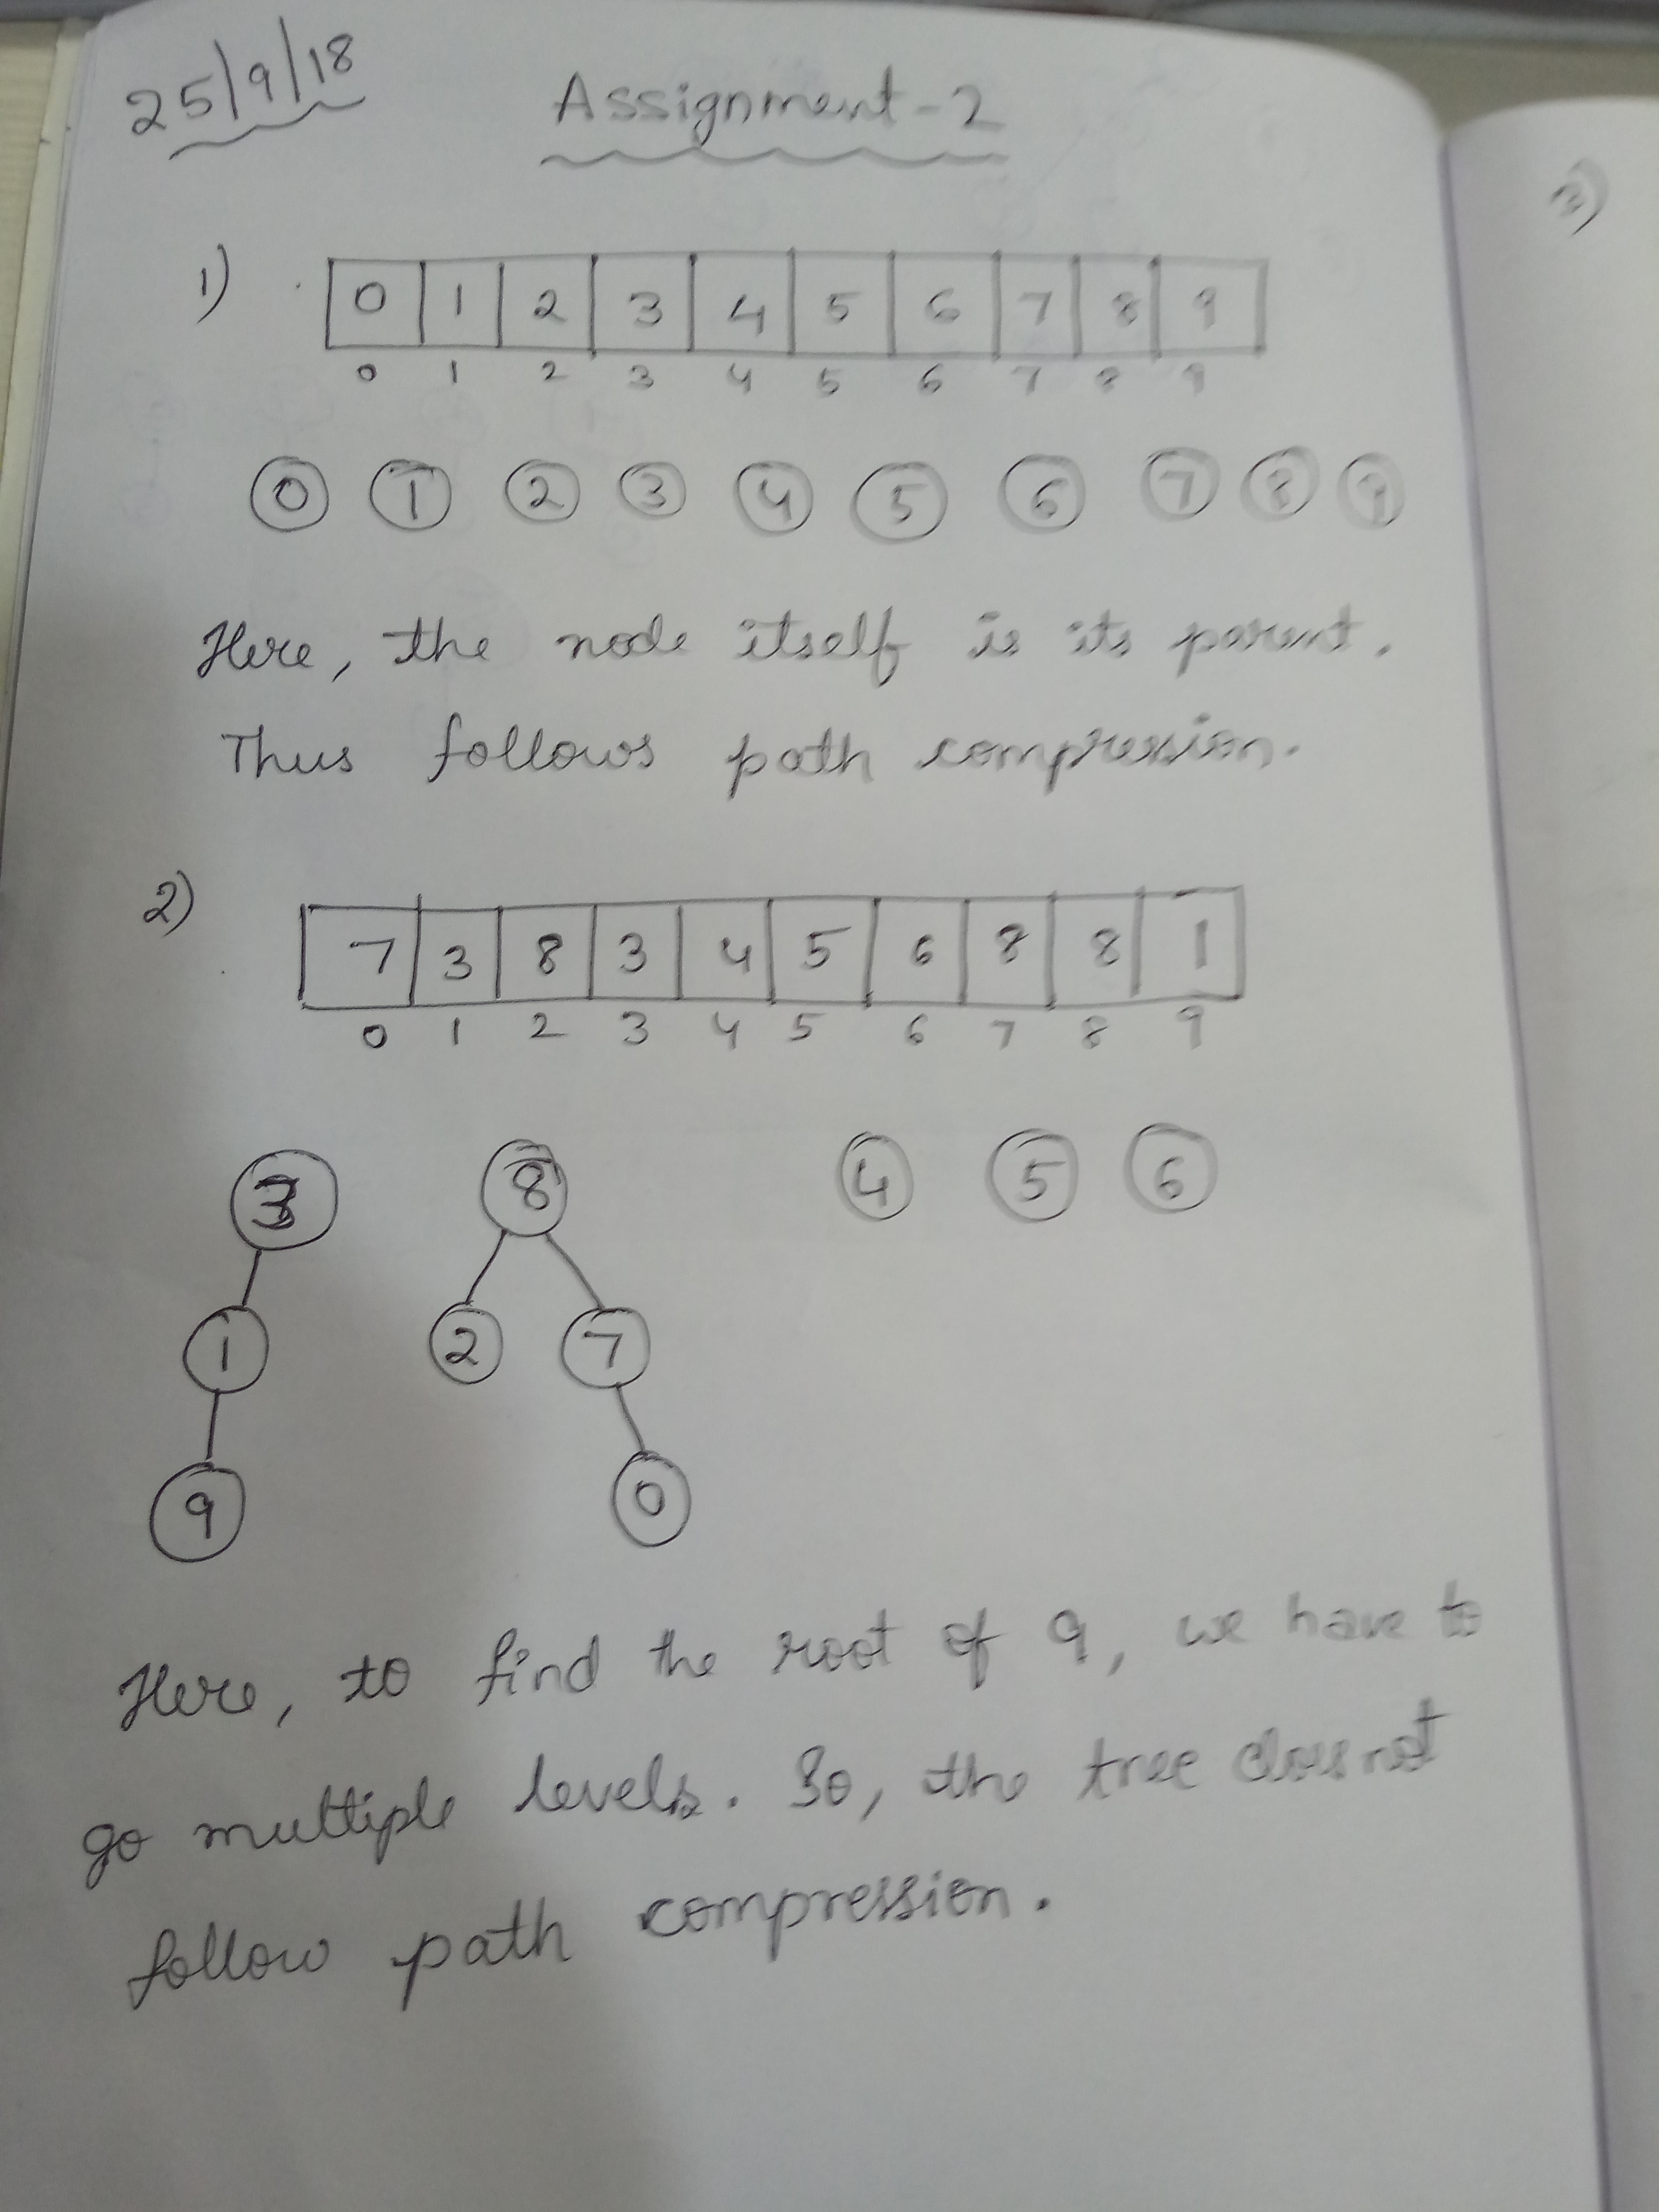 25/9/18
Assignment-2
1)
0 1 2 3 4 5 6 7 8 9
0 1 2 3 4 5 6 7 8 9
0 1 2 3 4 5 6 7 8 9
Here, the node itself is its parent.
Thus follows path compression.
2)
7 3 8 3 4 5 6 8 8 1
0 1 2 3 4 5 6 7 8 9
3 8 4 5 6
1 2 7
9 0
Here, to find the root of 9, we have to
go multiple levels. So, the tree does not
follow path compression.